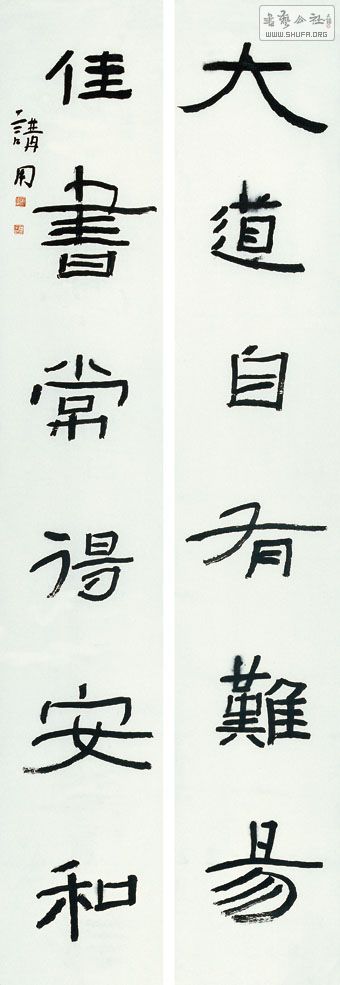 書藝公社
WWW.SHUFA.ORG
大道自有難易
佳書常得安和